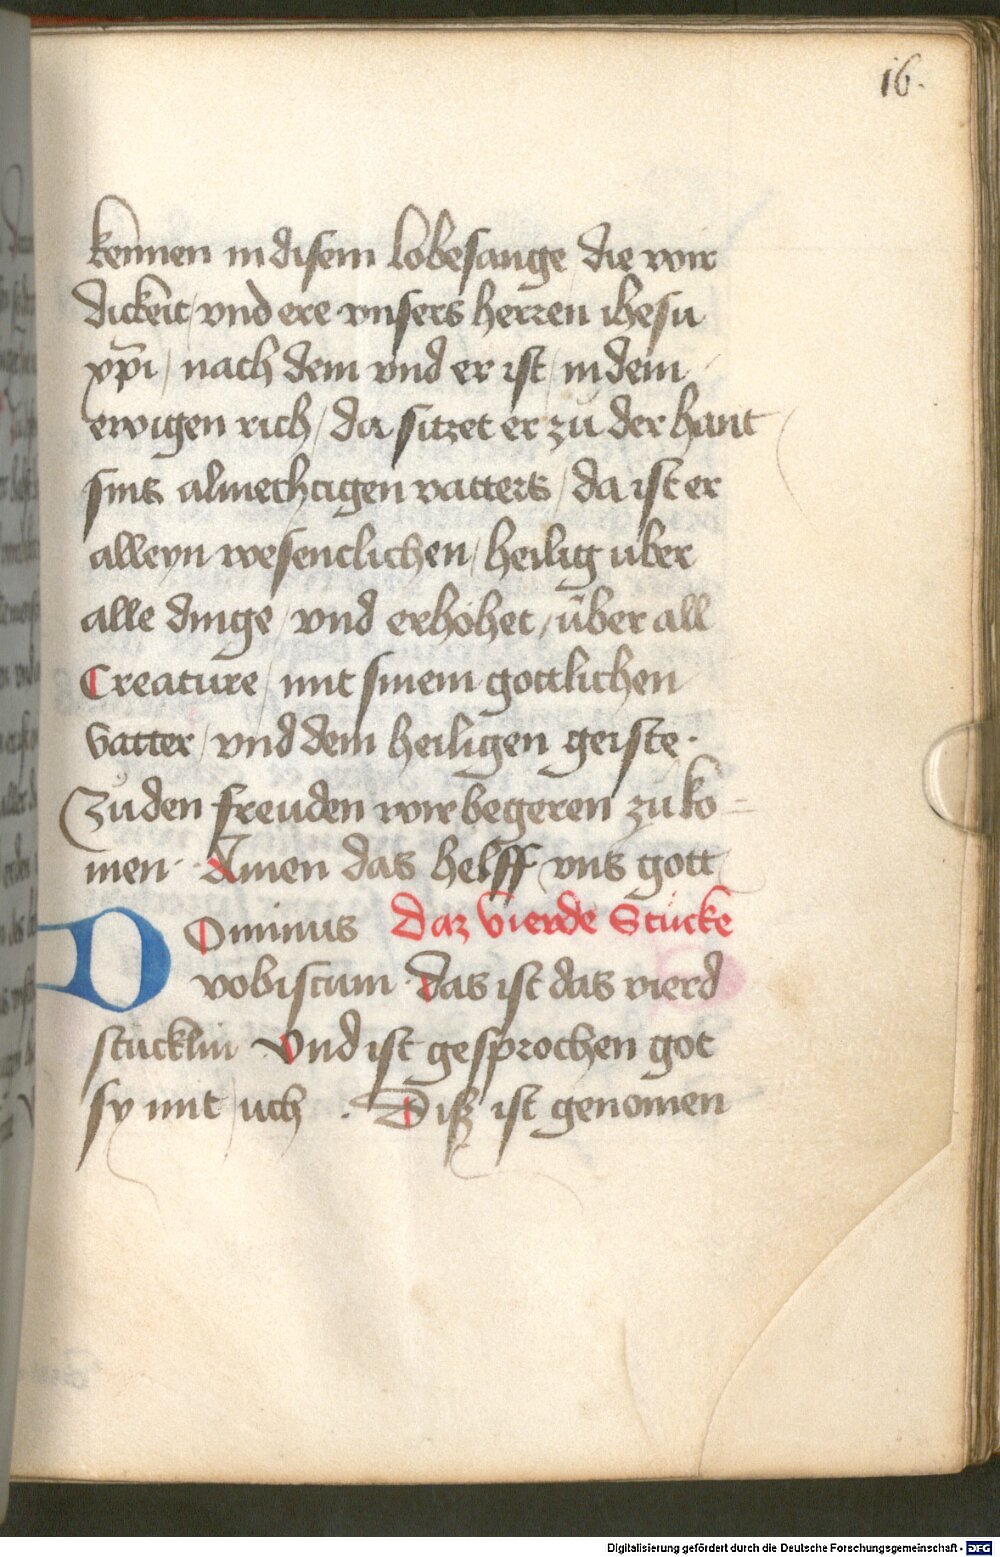 16.
kennen in disem lobesange / die wir
dickeit / vnd ere vnsers herren ihesu
xp̄i / nach dem vnd er ist / in dem
ewigen rich / da sitzet er zu der hant
sins almechtigen vatters / da ist er
alleyn wesenclichen / heilig uber
alle dinge / vnd erhöhet / über all
Creature / mit sinem gottlichen
vatter / vnd dem heiligen geiste ·
Zu den freuden wir begeren zu ko=
men · Amen das helff vns gott
DOminus Daz vierde Stücke
vobiscum · das ist das vierd
stucklin · Vnd ist gesprochen got
sy mit uch · Diß ist genomen
Digitalisierung gefördert durch die Deutsche Forschungsgemeinschaft - DFG